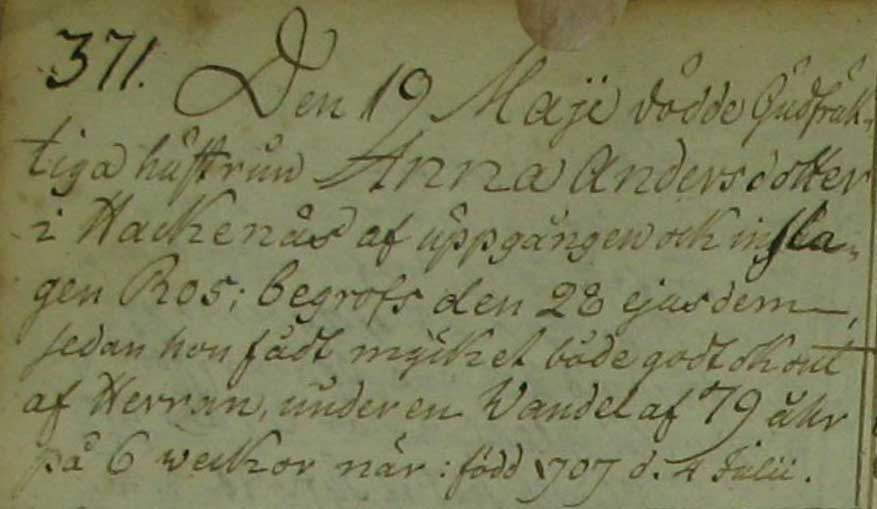 371. Den 19 Maji dödde Gudfruk-
tiga hustrun Anna Andersdotter
i Hackenäs af uppgången ock insla-
gen Ros; begrofs den 28 ejusdem,
sedan hon fådt myiket både godt ok ont
af Herran, under en Wandel af 79 åhr
på 6 weckor när: född 1707 d. 4 Julii.